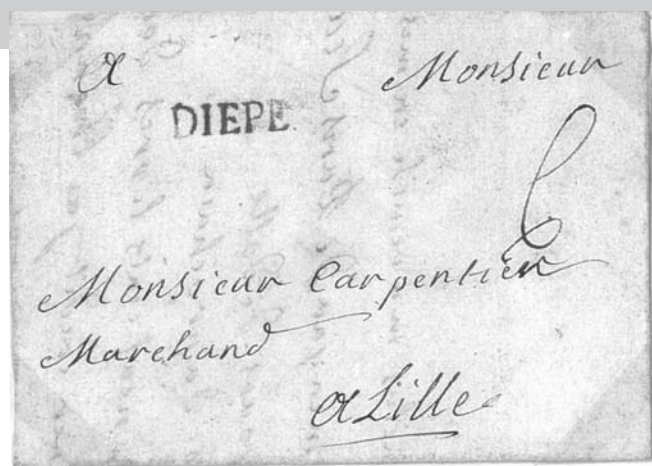 a Monsieur
DIEPE
Monsieur Carpentier
Marchand
a Lille